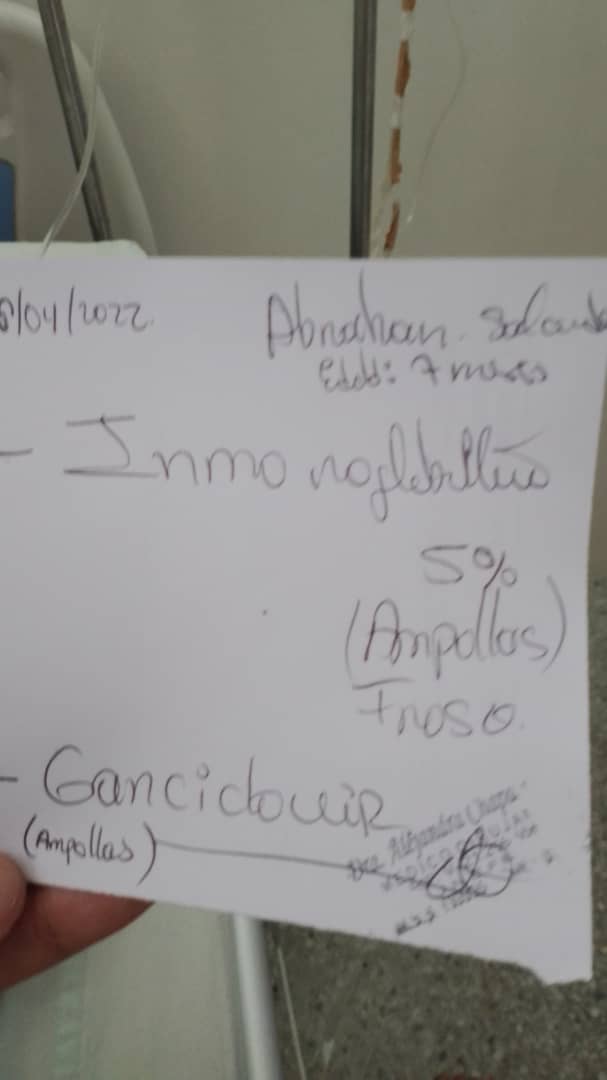 /04/2022.
Abrahan.
Edad: 7 meses
- Inmonoglobulina
5%
(Ampollas)
Frasco.
- Ganciclovir
(Ampollas)
Dra. Alejandra Chapa